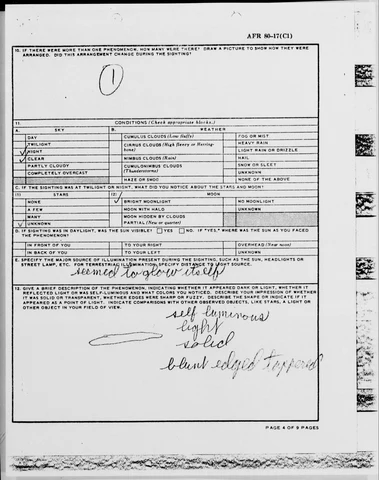 AFR 80-17(C1)
10. IF THERE WERE MORE THAN ONE PHENOMENON, HOW MANY WERE THERE? DRAW A PICTURE TO SHOW HOW THEY WERE
ARRANGED. DID THIS ARRANGEMENT CHANGE DURING THE SIGHTING?
1
11. CONDITIONS (Check appropriate blocks.)
A. SKY B. WEATHER
DAY CUMULUS CLOUDS (Low fluffy) FOG OR MIST
TWILIGHT CIRRUS CLOUDS (High fleecy or Herring-bone) HEAVY RAIN
NIGHT NIMBUS CLOUDS (Rain) LIGHT RAIN OR DRIZZLE
CLEAR CUMULONIMBUS CLOUDS (Thunderstorms) HAIL
PARTLY CLOUDY SNOW OR SLEET
COMPLETELY OVERCAST UNKNOWN
HAZE OR SMOG NONE OF THE ABOVE
C. IF THE SIGHTING WAS AT TWILIGHT OR NIGHT, WHAT DID YOU NOTICE ABOUT THE STARS AND MOON?
(1) STARS (2) MOON
NONE BRIGHT MOONLIGHT NO MOONLIGHT
A FEW MOON WITH HALO UNKNOWN
MANY MOON HIDDEN BY CLOUDS
UNKNOWN PARTIAL (New or quarter)
D. IF SIGHTING WAS IN DAYLIGHT, WAS THE SUN VISIBLE? YES NO. IF "YES," WHERE WAS THE SUN AS YOU FACED
THE PHENOMENON?
IN FRONT OF YOU TO YOUR RIGHT OVERHEAD (Near noon)
IN BACK OF YOU TO YOUR LEFT UNKNOWN
E. SPECIFY THE MAJOR SOURCE OF ILLUMINATION PRESENT DURING THE SIGHTING, SUCH AS THE SUN, HEADLIGHTS OR
STREET LAMP, ETC. FOR TERRESTRIAL ILLUMINATION, SPECIFY DISTANCE TO LIGHT SOURCE.
seemed to glow itself
12. GIVE A BRIEF DESCRIPTION OF THE PHENOMENON, INDICATING WHETHER IT APPEARED DARK OR LIGHT, WHETHER IT
REFLECTED LIGHT OR WAS SELF-LUMINOUS AND WHAT COLORS YOU NOTICED. DESCRIBE YOUR IMPRESSION OF WHETHER
IT WAS SOLID OR TRANSPARENT, WHETHER EDGES WERE SHARP OR FUZZY. DESCRIBE THE SHAPE OR INDICATE IF IT
APPEARED AS A POINT OF LIGHT. INDICATE COMPARISONS WITH OTHER OBSERVED OBJECTS, LIKE STARS, A LIGHT OR
OTHER OBJECT IN YOUR FIELD OF VIEW.
self luminous
light
solid
blunt edged tappered
PAGE 4 OF 9 PAGES